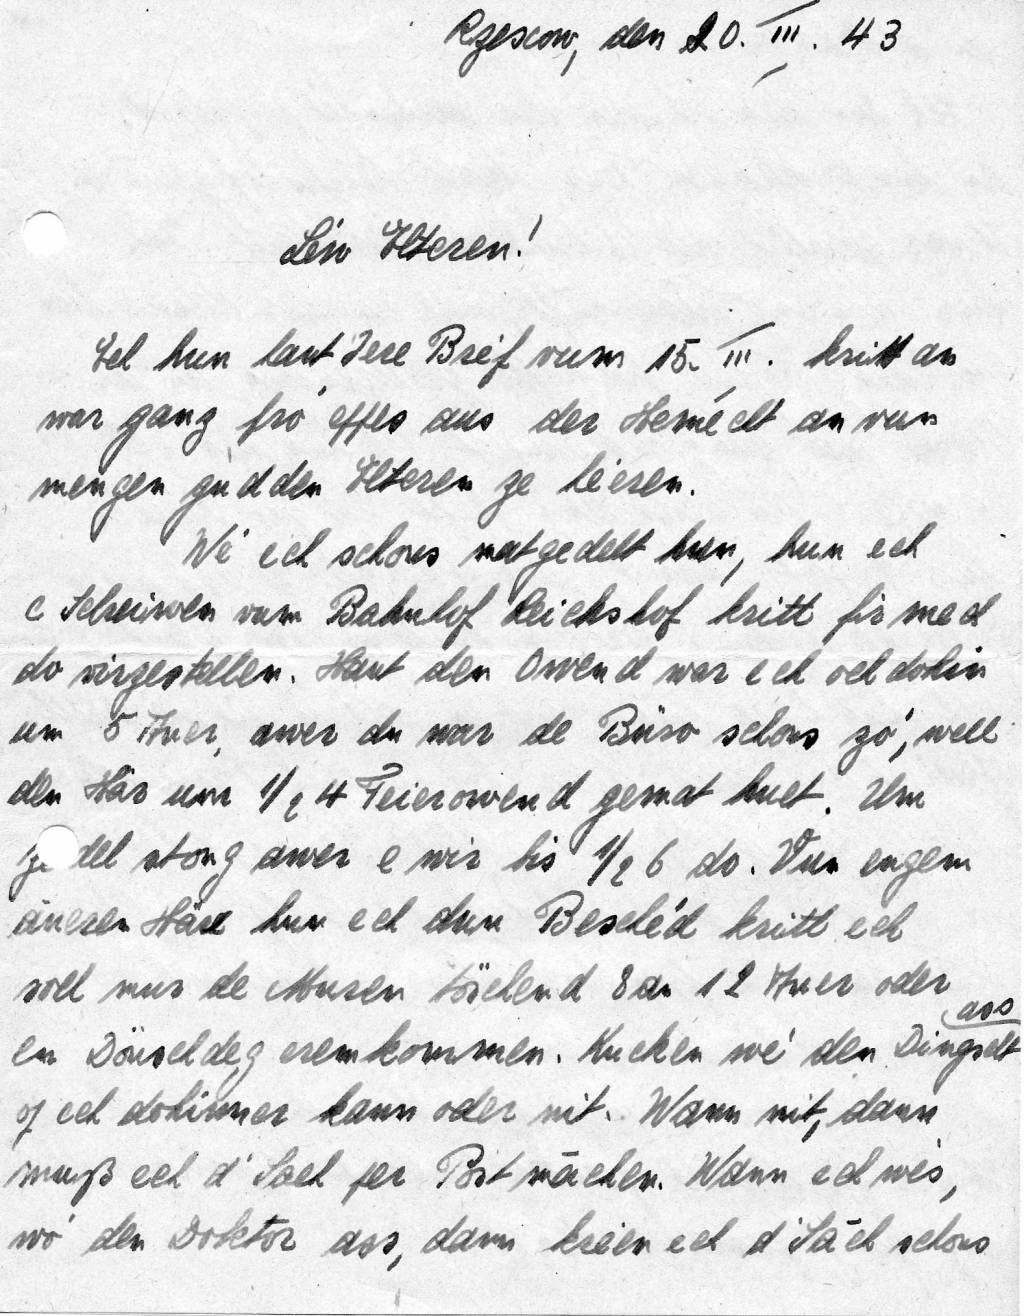 Rzeszow, den 20. III. 43
Léiw Elteren!
Ech hun haut Iere Bréf vum 15. III. kritt an
war ganz fro effes aus der Hemécht an vun
mengen gudden Elteren ze héieren.
Wé ech schons matgedelt hun, hun ech
e Schreiwen vum Bahnhof Reichshof kritt fir mech
do virzestellen. Haut den Owend war ech och dohin
um 5 Auer, awer du war de Büro schons zó, well
den Här um 1/2 4 Feierowend gemat huet. Um
Ze del stong awer e wir bis 1/2 6 do. Vun engem
äneren Här hun ech dun Beschéd kritt ech
soll mur de Muren töschend 8 an 12 Auer oder
en Dönschdeg eremkommen. Kucken wé den Dingselt ass
of ech dohinner kann oder nit. Wann nit, dann
muß ech d'Sach per Post mächen. Wann ech wés,
wó den Doktor ass, dann kréien ech d'Säch schons